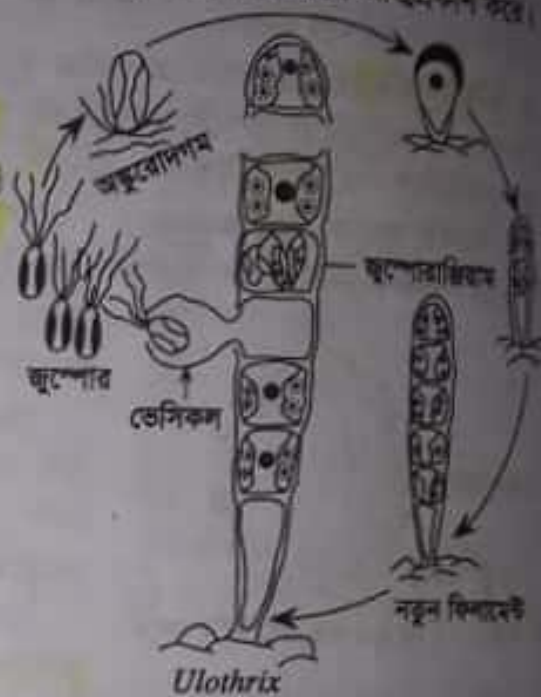 করে।
অঙ্কুরোদগম
জুস্পোরাঞ্জিয়াম
জুস্পোর
ভেসিকল
নতুন ফিলামেন্ট
Ulothrix